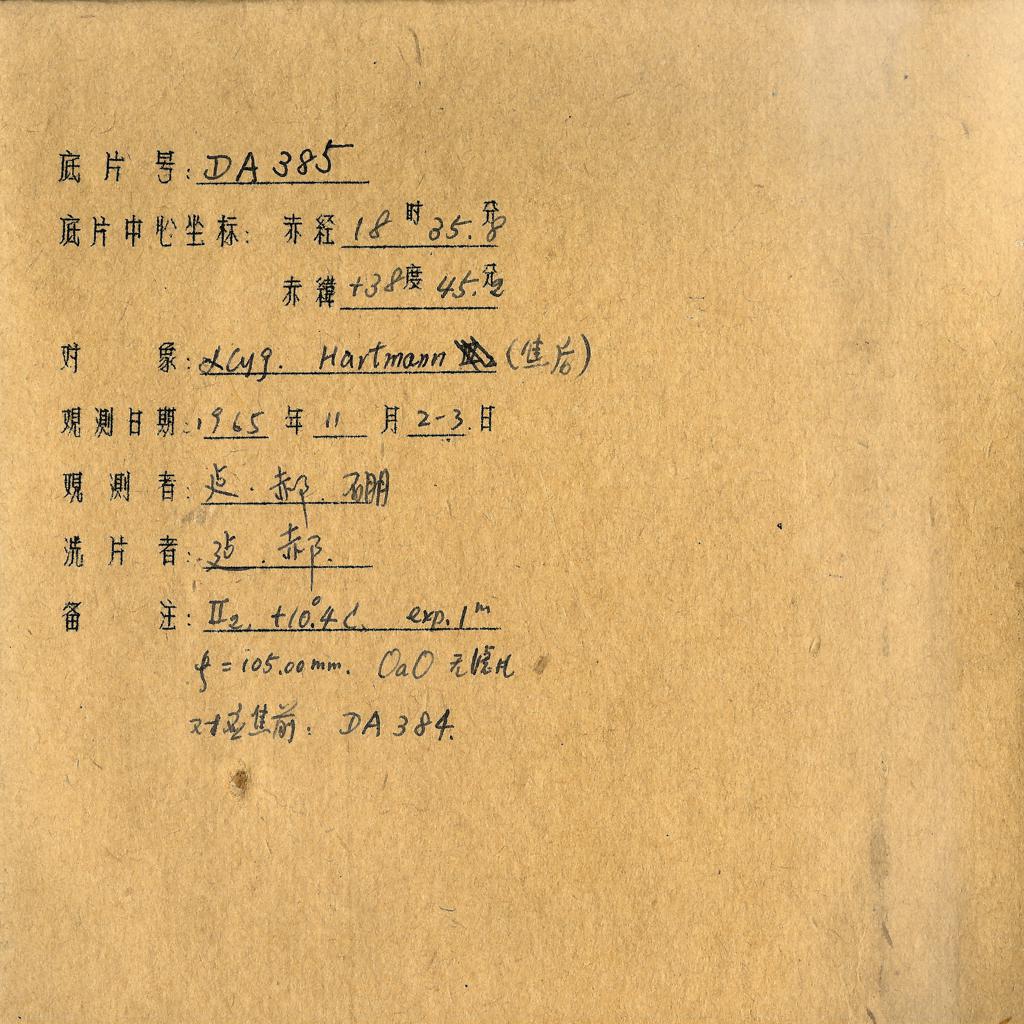 底片号: DA 385
底片中心坐标: 赤经 18时35.8分
赤纬 +38度45.2分
对象: αCyg. Hartmann (焦后)
观测日期: 1965年11月2-3日
观测者: 郝. 硼
洗片者: 郝.
备注: II2, +10°.4C, exp. 1m
=105.00mm. OaO 无滤片
对应焦前: DA 384.